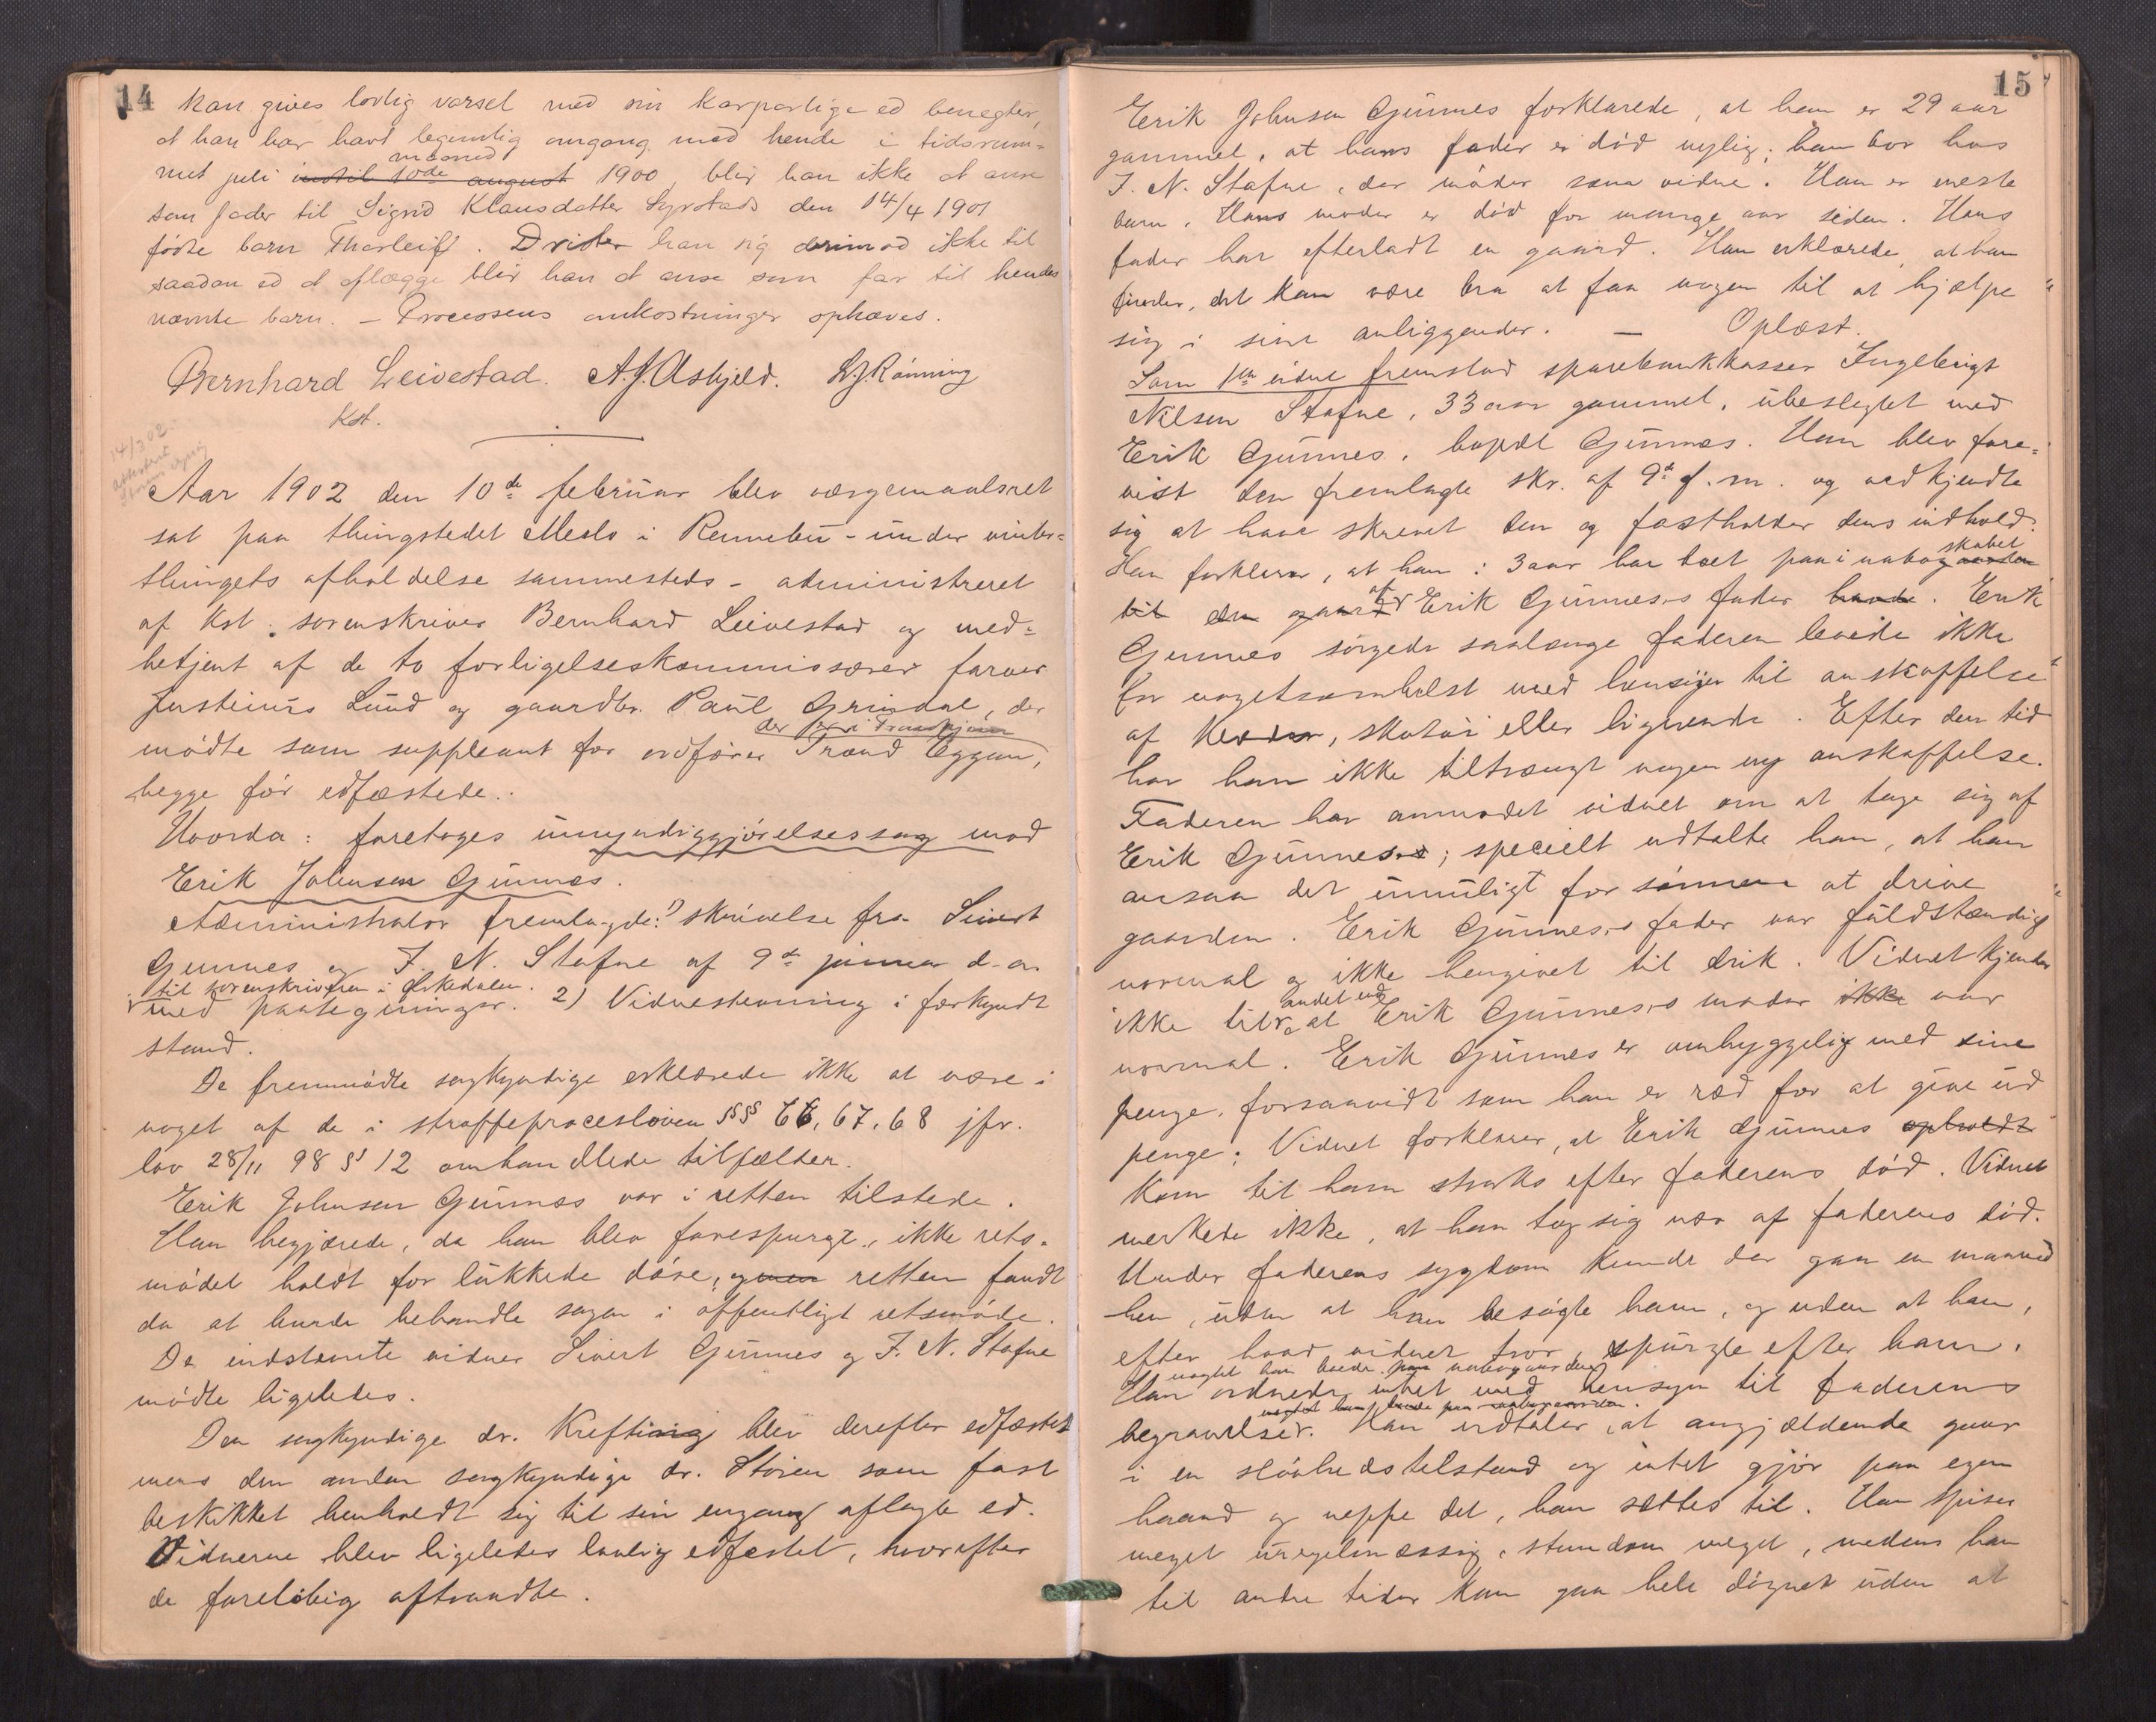 14
kan gives lovlig varsel med sin korporlige ed benegter,
at han har havt legemlig omgang med hende i tidsrum-
met juli maaned indtil 10de august 1900, blir han ikke at anse
som fader til Sigrid Klausdatter den 14/4 1901
fødte barn Thorleif. Drister han sig derimod ikke til
saadan ed at aflægge blir han at anse som far til hendes
nævnte barn. – Processens omkostninger ophæves.
Bernhard Leivestad. A.J. Asbjeld. Rönning
Kst.
14/3 02
Aar 1902 den 10de februar blev værgemaalsret
sat paa thingstedet Meslo i Rennebu – under vinter-
thingets afholdelse sammesteds – administreret
af kst. sorenskriver Bernhard Leivestad og med-
betjent af de to forligelseskommissærer farver
Justinus Lund og gaardbr. Paul Grindal, der
mødte som suppleant for ordfører Trond Eggan, der er i Trondhjem
begge før edfæstede.
Hvorda: foretoges umyndiggjørelsessag mod
Erik Johnsen Gunnes.
Administrator fremlagde: 1) skrivelse fra Sivert
Gunnes og I. N. Stafne af 9de januar d. a.
til sorenskriveren i Orkedalen
med paategninger. 2) Vidnestevning i forkyndt
stand.
De fremmødte sagkyndige erklærede ikke at være i
noget af de i straffeprocesloven §§§ 66, 67, 68 jfr.
lov 28/11 98 § 12 omhandlede tilfælder.
Erik Johnsen Gunnes var i retten tilstede.
Han begjærede, da han blev forespurgt, ikke rets-
mødet holdt for lukkede døre, og men retten fandt
da at burde behandle sagen i offentligt retsmøde.
De indstevnte vidner Sivert Gunnes og I. N. Stafne
mødte ligeledes.
Den sagkyndige dr. Krefting blev derefter edfæstet
mens den anden sagkyndige dr. Støren som fast
beskikket henholdt sig til sin engang aflagte ed.
Vidnerne blev ligeledes lovlig edfæstet, hvorefter
de foreløbig aftraadte.
15
Erik Johnsen Gunnes forklarede, at han er 29 aar
gammel, at hans fader er død nylig; han bor hos
I. N. Stafne, der møder som vidne. Han er eneste
barn. Hans moder er død for mange aar siden. Hans
fader har efterladt en gaard. Han erklærede, at han
finder, det kan være bra at faa nogen til at hjælpe
sig i sine anliggender. – Oplæst.
Som 1ste vidne fremstod sparebankkasser Ingebrigt
Nilsen Stafne, 33 aar gammel, ubeslegtet med
Erik Gunnes, bopæl Gunnes. Han blev fore-
vist den fremlagte skr. af 9de f. m. og vedkjendte
sig at have skrevet den og fastholder dens indhold.
Han forklarer, at han i 3 aar har boet paa i nabogaarden skabet
til den gaard af Erik Gunnes's fader havde. Erik
Gunnes sørgede saalænge faderen levede ikke
for nogetsomhelst med hensyn til anskaffelse
af klæder, skotøi eller lignende. Efter den tid
har han ikke tiltrængt nogen ny anskaffelse.
Faderen har anmodet vidnet om at tage sig af
Erik Gunnes; specielt udtalte han, at han
ansaa det umuligt for sønnen at drive
gaarden. Erik Gunnes's fader var fuldstændig
normal og ikke hengivet til drik. Vidnet kjender
ikke til andet end at Erik Gunnes's moder ikke var
normal. Erik Gunnes er omhyggelig med sine
penge, forsaavidt som han er ræd for at give ud
penge. Vidnet forklarer, at Erik Gunnes opholdt
kom til ham straks efter faderens død. Vidnet
merkede ikke, at han tog sig nær af faderens død.
Under faderens sygdom kunde der gaa en maaned
hen, uden at han besøgte ham, og uden at han,
efter hvad vidnet tror, spurgte efter ham,
uagtet han boede paa nabogaarden
Han ordnede intet med hensyn til faderens
uagtet han boede paa nabogaarden.
begravelse. Han udtaler, at angjældende gaar
i en sløvhedstilstand og intet gjør paa egen
haand og neppe det, han sættes til. Han spiser
meget uregelmæssig, stundom meget, medens han
til andre tider kan gaa hele døgnet uden at